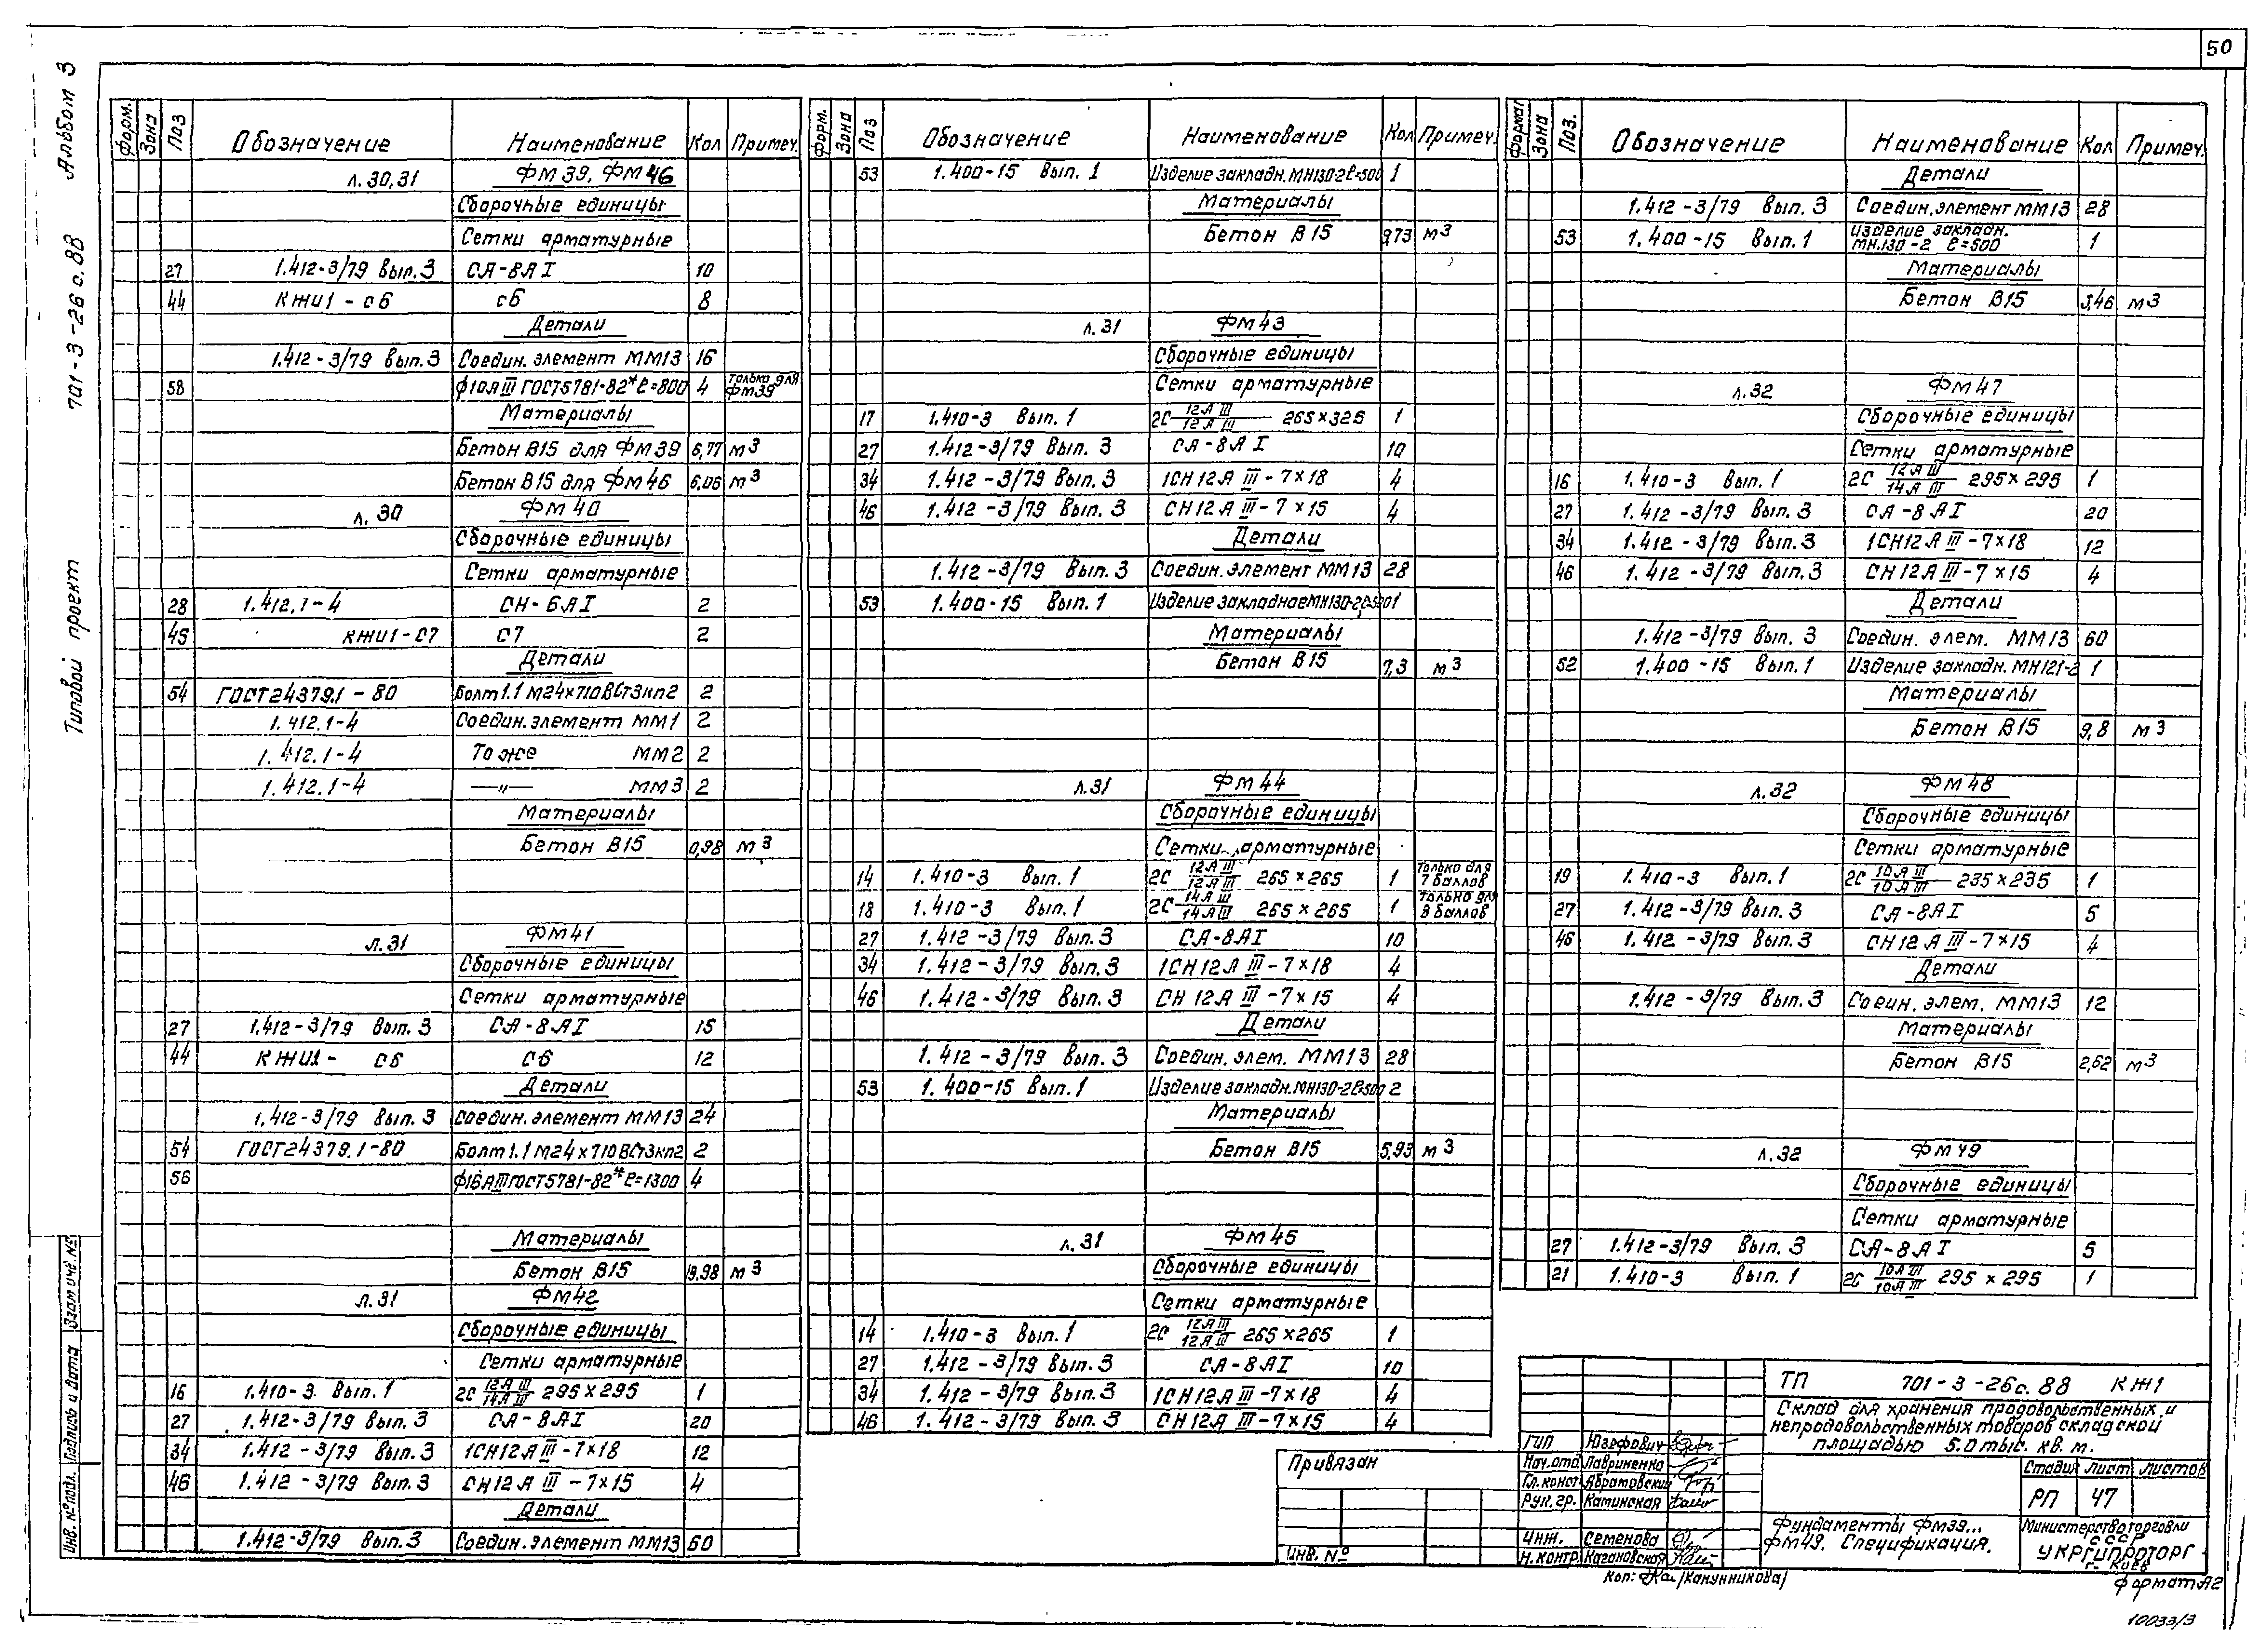 50
Альбом 3
701-3-26с.88
Типовой проект
Форм. Зона Поз Обозначение Наименование Кол Примеч.
л.30,31 ФМ39, ФМ46
Сборочные единицы
Сетки арматурные
27 1.412-3/79 Вып.3 СА-8АI 10
44 КЖИ1-С6 С6 8
Детали
1.412-3/79 Вып.3 Соедин.элемент ММ13 16
58 ф10АIII ГОСТ5781-82* ℓ=800 4 только для ФМ39
Материалы
Бетон В15 для ФМ39 6,77 м3
Бетон В15 для ФМ46 6,06 м3
л.30 ФМ40
Сборочные единицы
Сетки арматурные
28 1.412.1-4 СН-6АI 2
45 КЖИ1-С7 С7 2
Детали
54 ГОСТ24379.1-80 Болт1.1 М24х710ВСт3кп2 2
1.412.1-4 Соедин.элемент ММ1 2
1.412.1-4 То же ММ2 2
1.412.1-4 —"— ММ3 2
Материалы
Бетон В15 0,98 м3
л.31 ФМ41
Сборочные единицы
Сетки арматурные
27 1.412-3/79 Вып.3 СА-8АI 15
44 КЖИ1- С6 С6 12
Детали
1.412-3/79 Вып.3 Соедин.элемент ММ13 24
54 ГОСТ24379.1-80 Болт1.1 М24х710ВСт3кп2 2
56 ф16АIII ГОСТ5781-82* ℓ=1300 4
Материалы
Бетон В15 19,98 м3
л.31 ФМ42
Сборочные единицы
Сетки арматурные
16 1.410-3 Вып.1 2С 12АIII/14АIII 295×295 1
27 1.412-3/79 Вып.3 СА-8АI 20
34 1.412-3/79 Вып.3 1СН12АIII-7×18 12
46 1.412-3/79 Вып.3 СН12АIII-7×15 4
Детали
1.412-3/79 Вып.3 Соедин.элемент ММ13 60
Форм. Зона Поз Обозначение Наименование Кол Примеч.
53 1.400-15 Вып.1 Изделие закладн.МН130-2ℓ=500 1
Материалы
Бетон В15 9,73 м3
л.31 ФМ43
Сборочные единицы
Сетки арматурные
17 1.410-3 Вып.1 2С 12АIII/12АIII 265×325 1
27 1.412-3/79 Вып.3 СА-8АI 10
34 1.412-3/79 Вып.3 1СН12АIII-7×18 4
46 1.412-3/79 Вып.3 СН12АIII-7×15 4
Детали
1.412-3/79 Вып.3 Соедин.элемент ММ13 28
53 1.400-15 Вып.1 Изделие закладноеМН130-2ℓ=500 1
Материалы
Бетон В15 7,3 м3
л.31 ФМ44
Сборочные единицы
Сетки арматурные
14 1.410-3 Вып.1 2С 12АIII/12АIII 265×265 1 только для 7 баллов
18 1.410-3 Вып.1 2С 14АIII/14АIII 265×265 1 только для 8 баллов
27 1.412-3/79 Вып.3 СА-8АI 10
34 1.412-3/79 Вып.3 1СН12АIII-7×18 4
46 1.412-3/79 Вып.3 СН12АIII-7×15 4
Детали
1.412-3/79 Вып.3 Соедин.элем. ММ13 28
53 1.400-15 Вып.1 Изделие закладн.МН130-2ℓ=500 2
Материалы
Бетон В15 5,93 м3
л.31 ФМ45
Сборочные единицы
Сетки арматурные
14 1.410-3 Вып.1 2С 12АIII/12АIII 265×265 1
27 1.412-3/79 Вып.3 СА-8АI 10
34 1.412-3/79 Вып.3 1СН12АIII-7×18 4
46 1.412-3/79 Вып.3 СН12АIII-7×15 4
Формат Зона Поз. Обозначение Наименование Кол Примеч.
Детали
1.412-3/79 Вып.3 Соедин.элемент ММ13 28
53 1.400-15 Вып.1 Изделие закладн. МН.130-2 ℓ=500 1
Материалы
Бетон В15 5,46 м3
л.32 ФМ47
Сборочные единицы
Сетки арматурные
16 1.410-3 Вып.1 2С 12АIII/14АIII 295×295 1
27 1.412-3/79 Вып.3 СА-8АI 20
34 1.412-3/79 Вып.3 1СН12АIII-7×18 12
46 1.412-3/79 Вып.3 СН12АIII-7×15 4
Детали
1.412-3/79 Вып.3 Соедин. элем. ММ13 60
52 1.400-15 Вып.1 Изделие закладн. МН121-2 1
Материалы
Бетон В15 9,8 м3
л.32 ФМ48
Сборочные единицы
Сетки арматурные
19 1.410-3 Вып.1 2С 10АIII/10АIII 235×235 1
27 1.412-3/79 Вып.3 СА-8АI 5
46 1.412-3/79 Вып.3 СН12АIII-7×15 4
Детали
1.412-3/79 Вып.3 Соедин.элем. ММ13 12
Материалы
Бетон В15 2,62 м3
л.32 ФМ49
Сборочные единицы
Сетки арматурные
27 1.412-3/79 Вып.3 СА-8АI 5
21 1.410-3 Вып.1 2С 10АIII/10АIII 295×295 1
Привязан
Инв. №
ГИП Юзефович
Нач.отд Лавриненко
Гл.конст Абратовский
Рук.гр. Каминская
Инж. Семенова
Н.контр. Кагановская
ТП 701-3-26с.88 КЖ1
Склад для хранения продовольственных и
непродовольственных товаров складской
площадью 5.0 тыс. кв. м.
Стадия Лист Листов
РП 47
Фундаменты ФМ39...
ФМ49. Спецификация.
Министерство торговли
СССР
УКРГИПРОТОРГ
г. Киев
Коп: /Канунникова/
Формат А2
10033/3
Взам инв.№
Подпись и дата
Инв.№ подл.